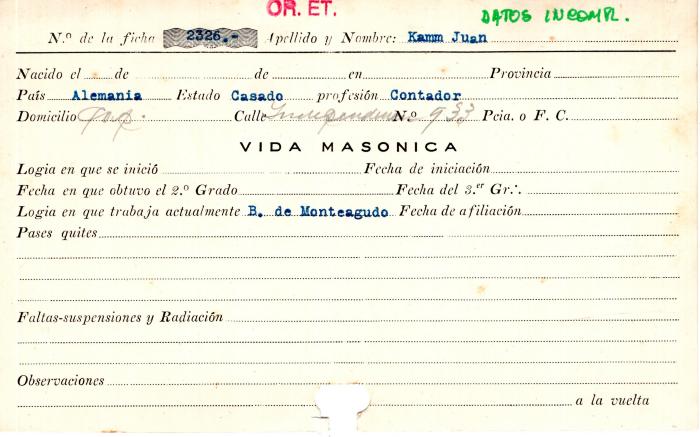 OR. ET.
DATOS INCOMPL.
N.º de la ficha 2326.- Apellido y Nombre: Kamm Juan
Nacido el de de en Provincia
País Alemania Estado Casado profesión Contador
Domicilio Calle Independencia N.º 933 Pcia. o F. C.
VIDA MASONICA
Logia en que se inició Fecha de iniciación
Fecha en que obtuvo el 2.º Grado Fecha del 3.er Gr∴
Logia en que trabaja actualmente B. de Monteagudo Fecha de afiliación
Pases quites
Faltas-suspensiones y Radiación
Observaciones
a la vuelta